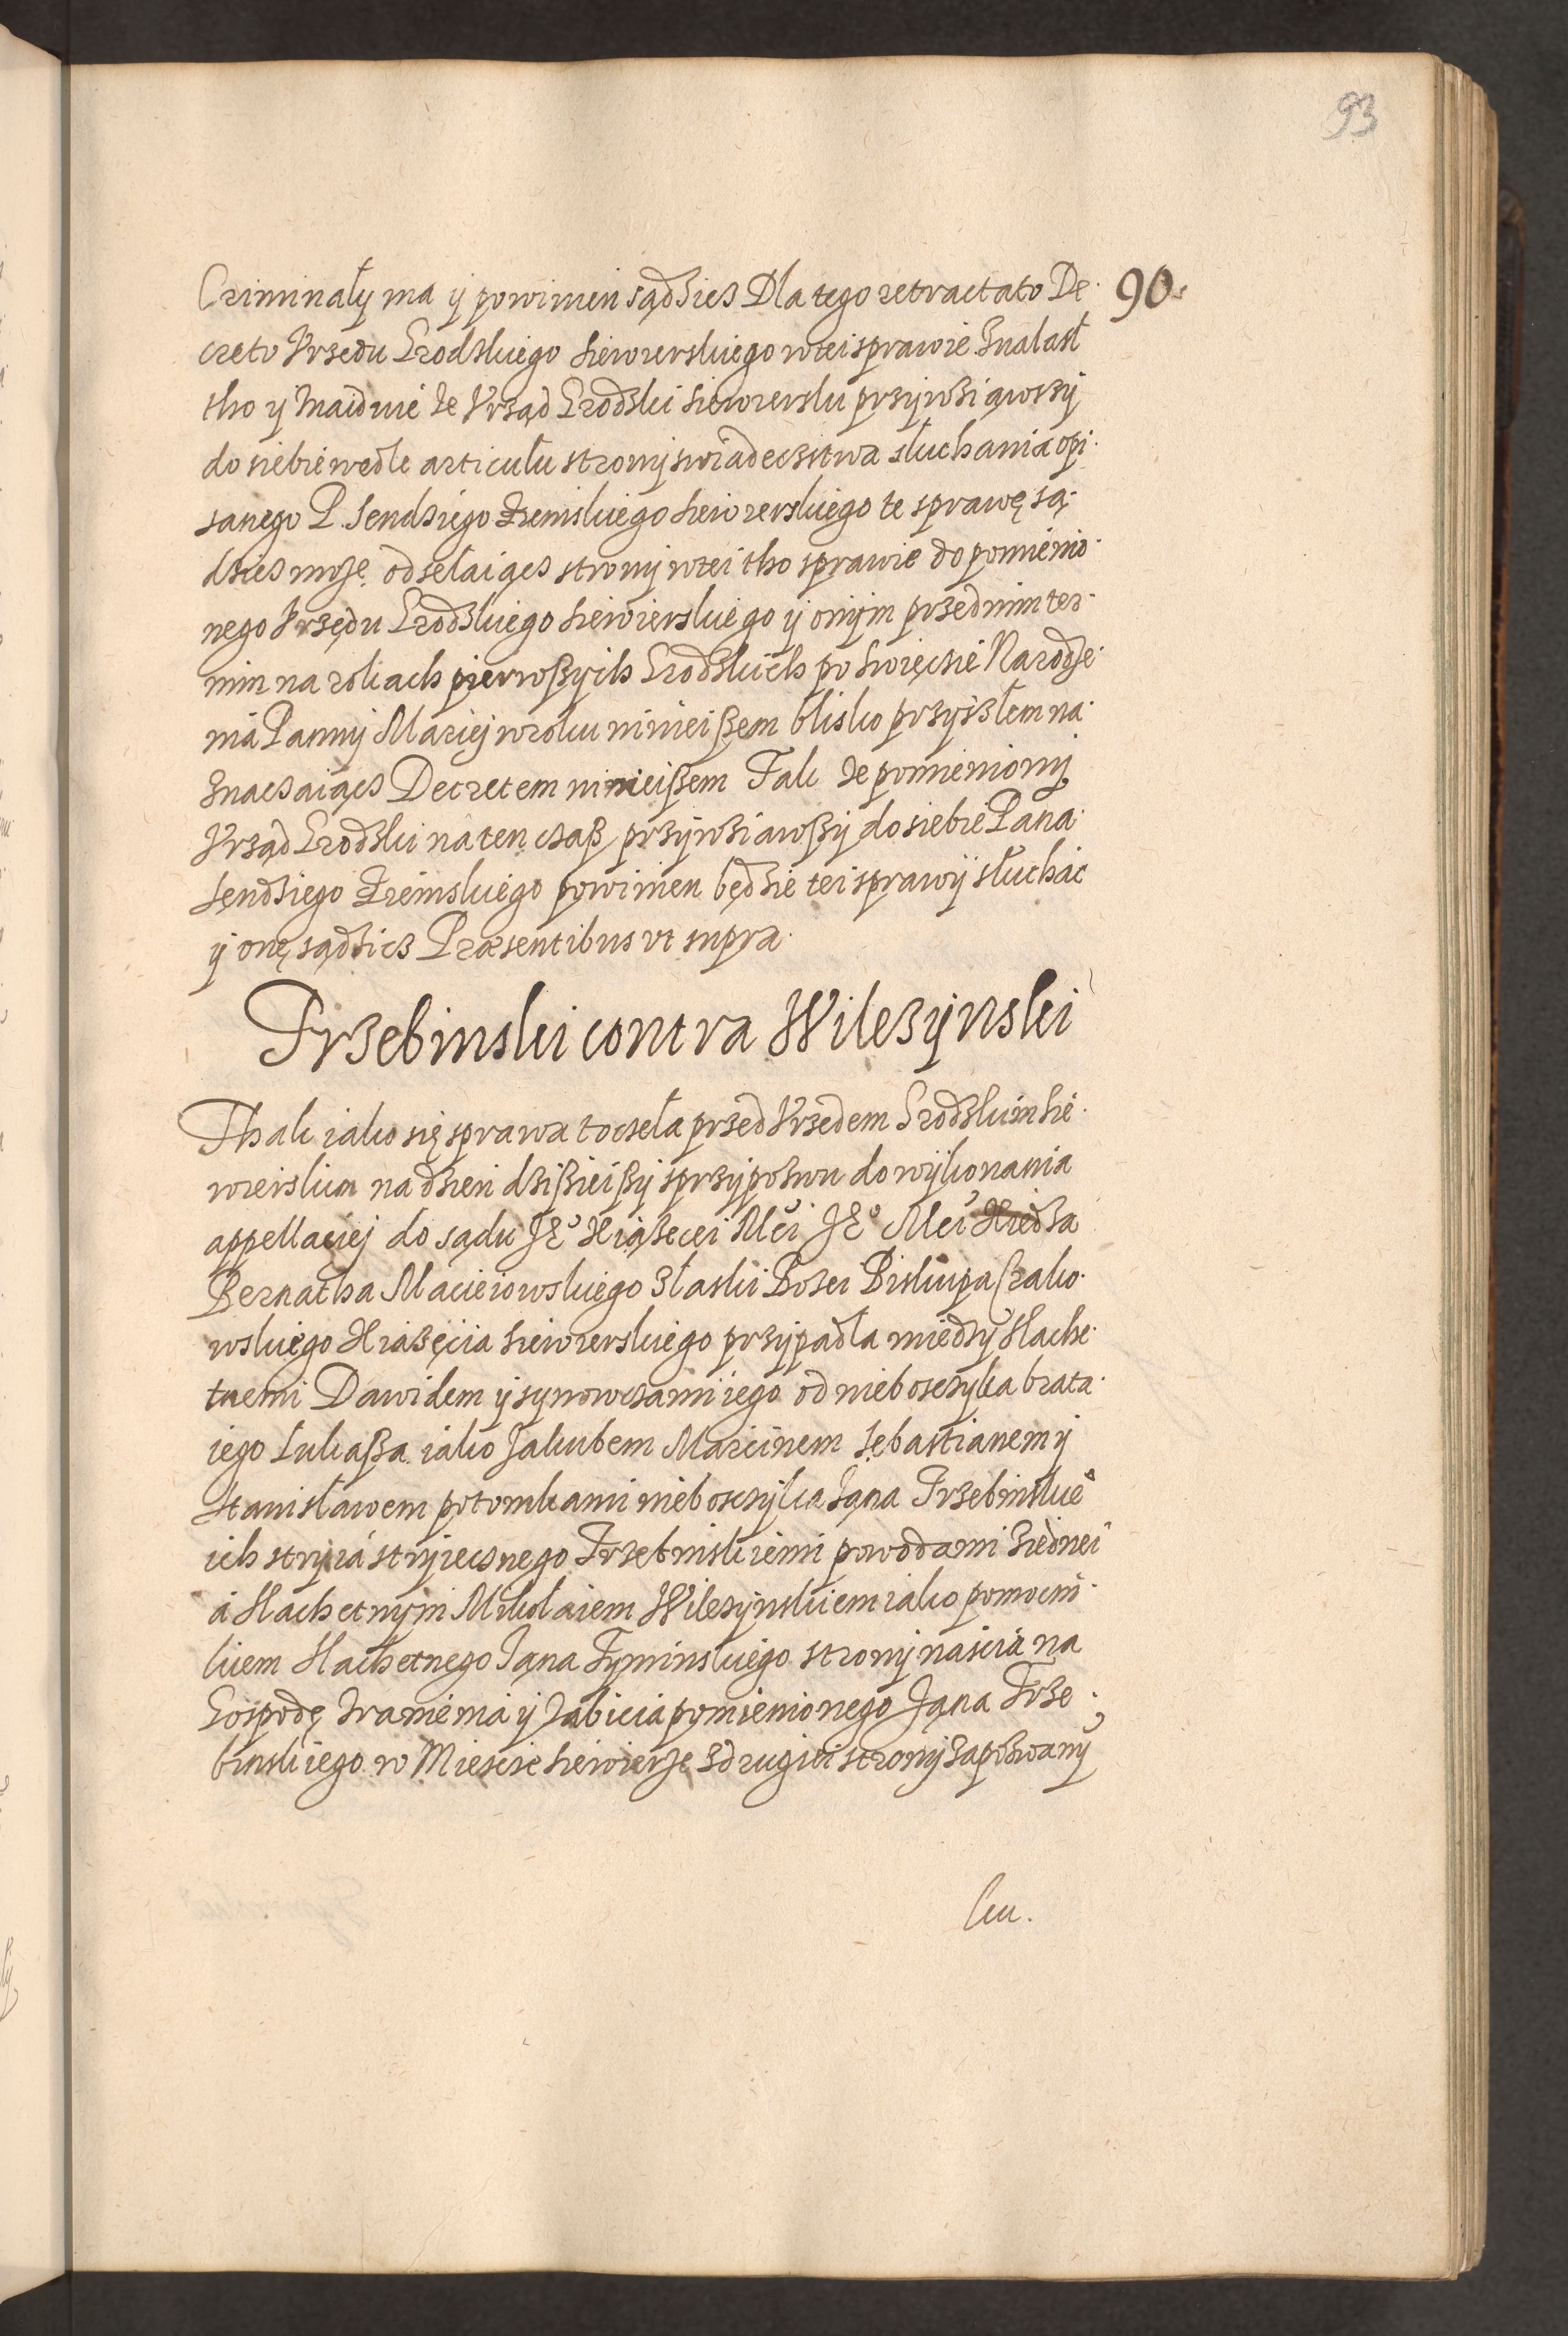 93
Criminały ma ÿ powinien sądzicz Dla tego retractato De- 90.
creto Vrzedu Grodzkiego Siewierskiego wtei sprawie Znalasł
tho ÿ Znaiduie że Vrząd Grodzki Siewierski przÿwziąwszÿ
do siebie wedle articułu stronÿ swiadecztwa słuchania opi-
sanego P. Sendziego Ziemskiego Siewierskiego te sprawę są-
dzicz może odsełaiącz stronÿ wtei tho sprawie do pomienio-
nego Vrzędu Grodzkiego Siewierskiego ÿ onÿm przednim ter-
min na rokach pierwßÿch Grodzkich po Swięcie Narodze-
nia Pannÿ Mariej wroku ninieißem blisko przÿszłem na-
znaczaiącz Decretem ninieißem Tak że pomienionÿ
Vrząd Grodzki na ten czaß przÿwziawßÿ do siebie Pana
Sendziego Ziemskiego powinien będzie tei sprawÿ słuchac
ÿ onę sądzicz Præsentibus vt supra.
Trzebinski contra Wilczÿnski
Thak iako się sprawa toczeła przed Vrzedem Grodzkim Sie-
wierskim na dzien dzißieißÿ z przÿpozwu do wÿkonania
appellaciej do sądu Je° Xiążecei Mci Je° Mci Xiedza
Bernatha Macieiowskiego Złaski Bożei Biskupa Crako-
wskiego Xiażęcia Siewierskiego przÿpadła miedzÿ Slache-
tnemi Dawidem ÿ sÿnowczami iego od nieboszczÿka brata
iego Lukaßa iako Jakubem Marcinem Sebastianem ÿ
Stanisławem potomkami nieboszczÿka Jana Trzebinskie°
ich strÿia strÿiecznego Trzebinskiemi powodami ziednei
a Slachetnÿm Mikołaiem Wilczÿnskiem iako pomocni-
kiem Slachetnego Jana Zÿminskiego stronÿ nascia na
Gospodę zranienia ÿ zabicia pomienionego Jana Trze-
binskiego w Miescie Siewierze zdrugiei stronÿ zapozwanÿ